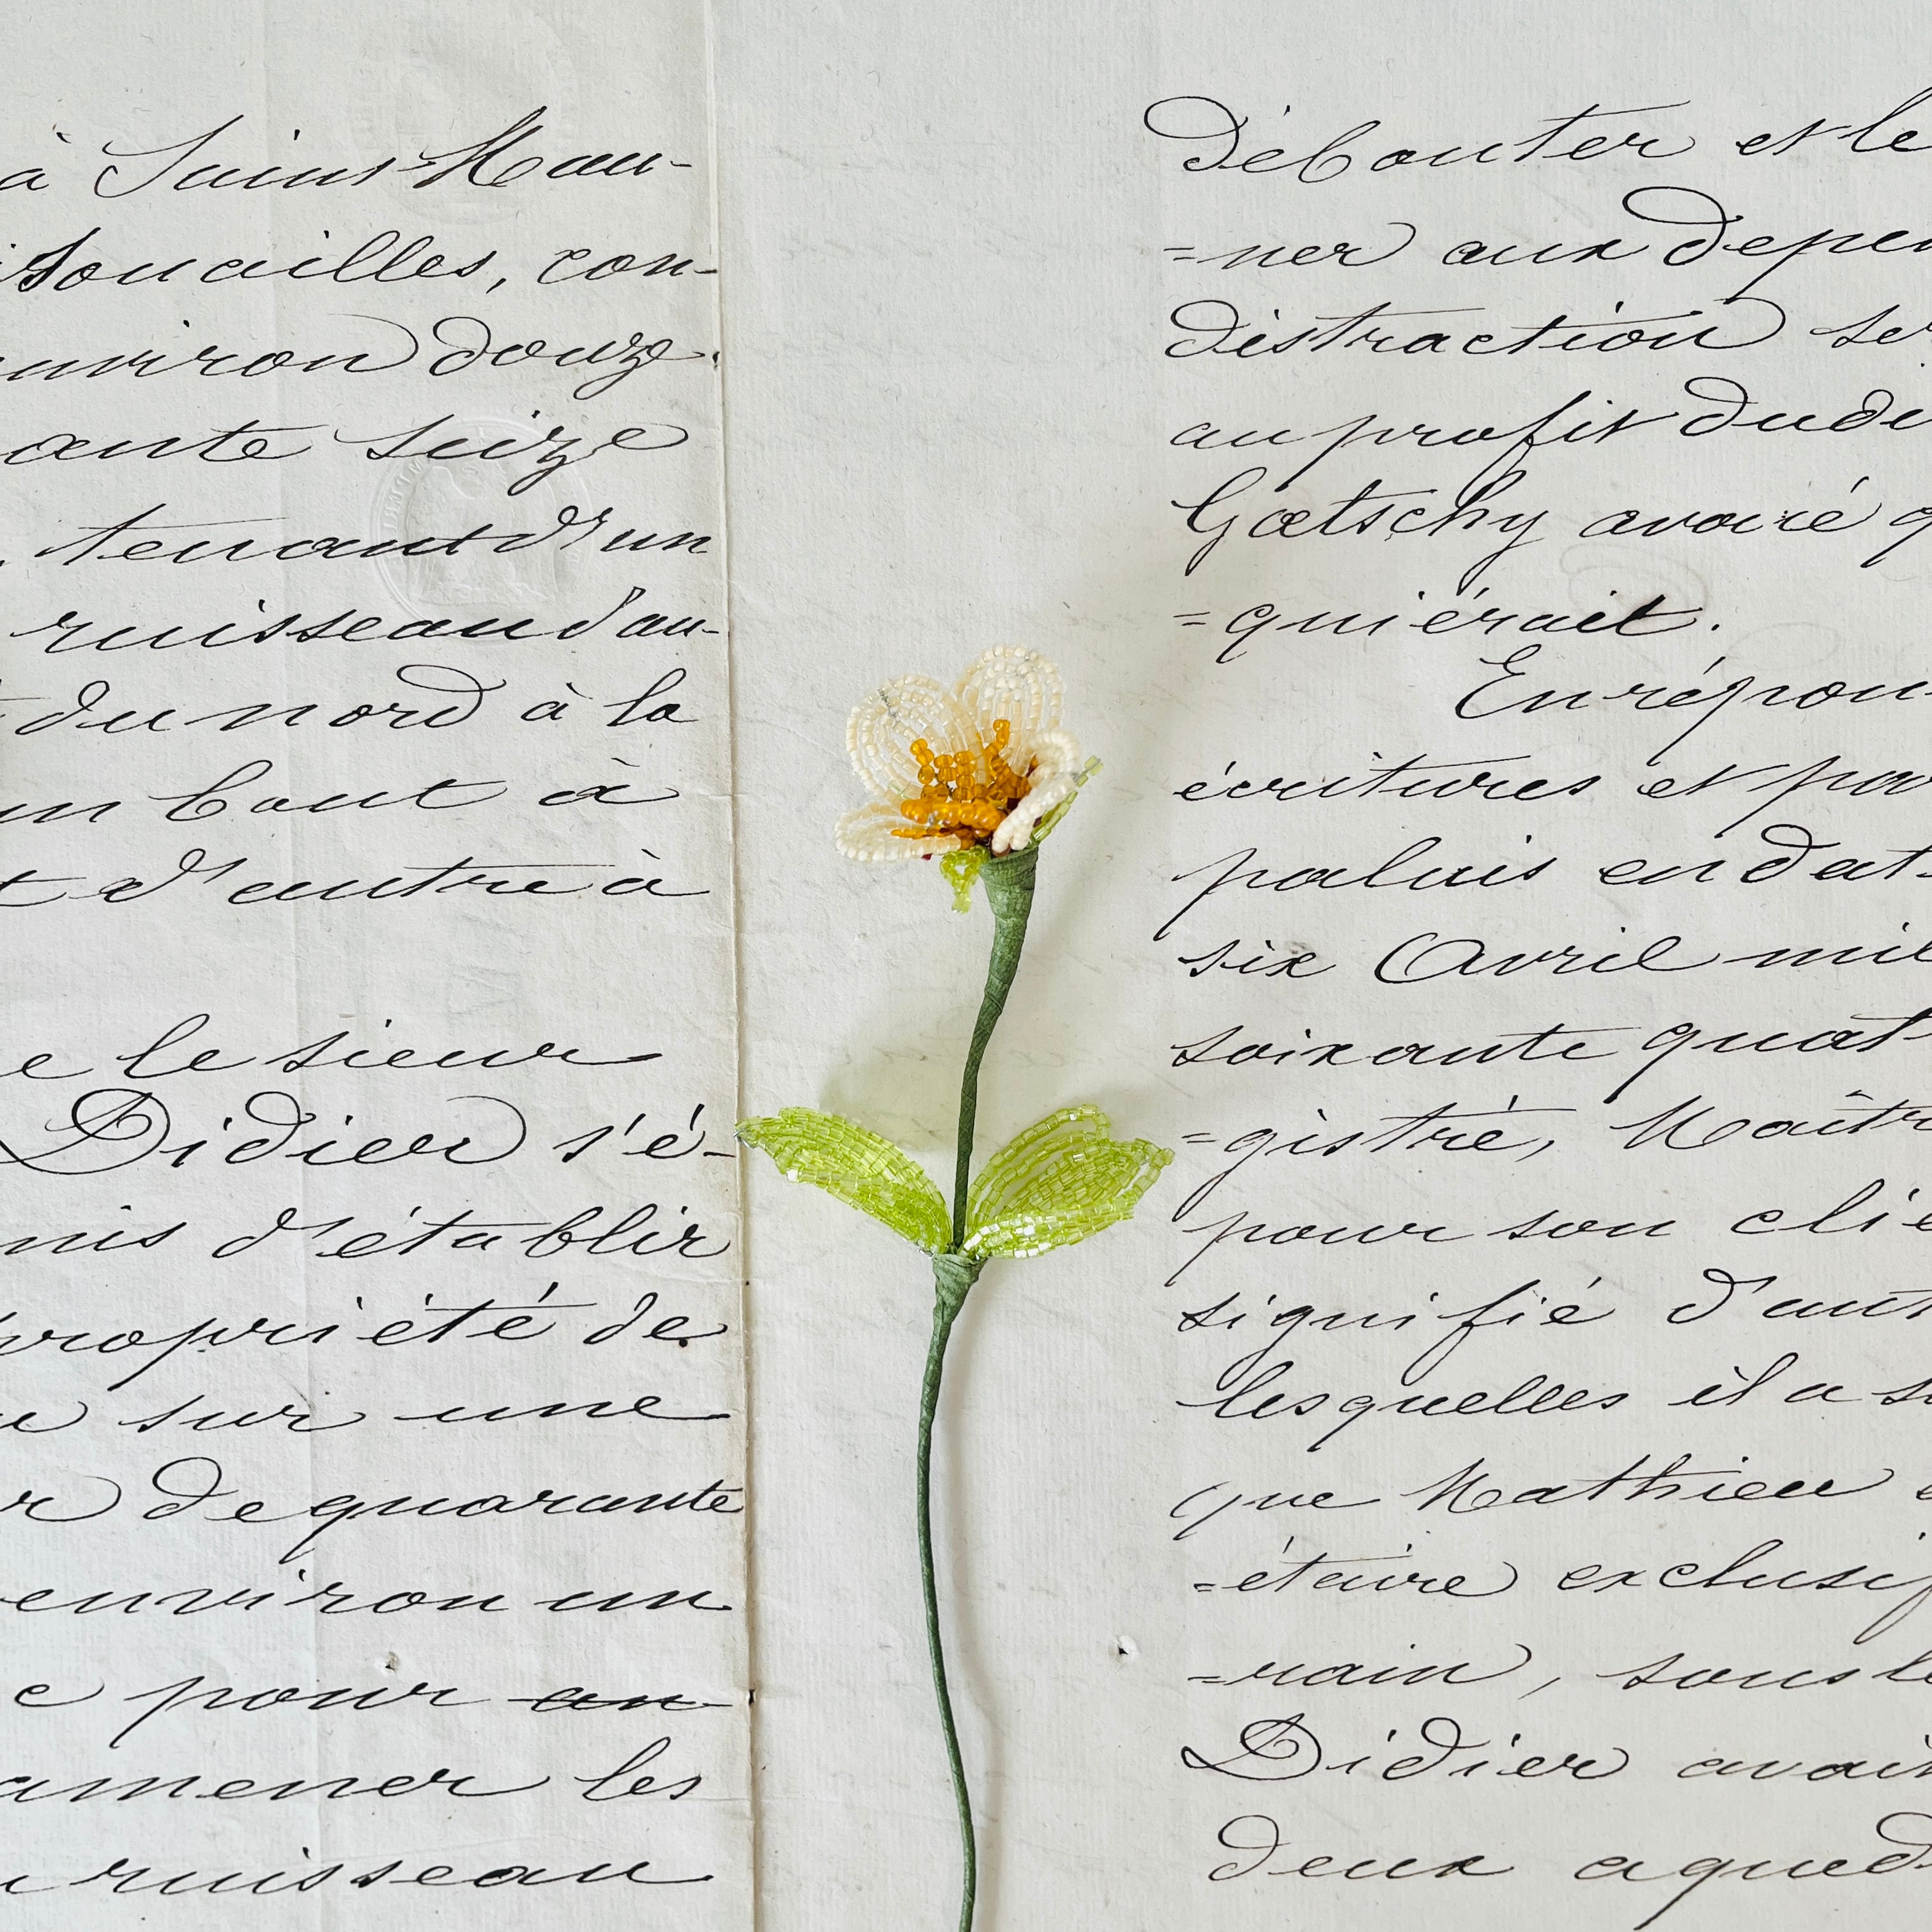 à Saint-Mau-
Soucilles, con-
environ douze
ante seize
tenant d'un
ruisseau d'au-
du nord à la
un bout à
t d'autre à
e le sieur
Didier s'é-
mis d'établir
propriété de
sur une
de quarante
environ un
e pour an-
amener les
ruisseau
Débouter et le
=ner aux dépen
distraction ser
au profit dudi
Gœtschy avoué q
=quiérait.
En répon
écritures et par
palais en dat
six Avril mil
soixante quat
=gistré, Maîtr
pour son clie
signifié d'aut
lesquelles il a s
que Mathieu
=étaire exclusif
=rain, sous le
Didier avait
deux aqued